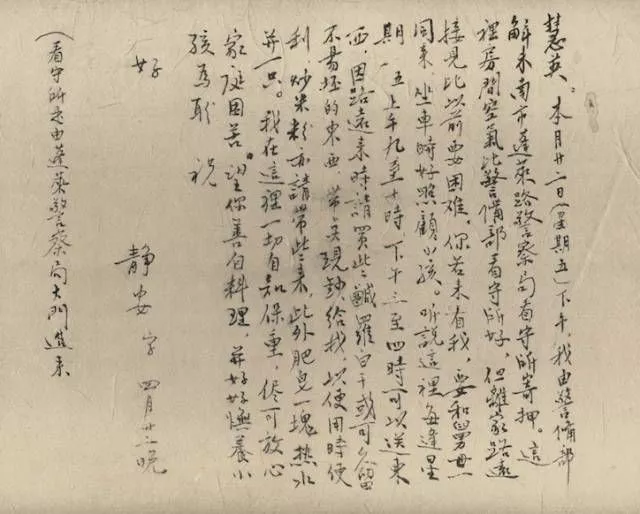 慧英。本月廿二日（星期五）下午，我由警備部
解来南市蓬萊路警察局看守所寄押。這
裡房間空氣比警備部看守所好，但離家路遠
接見比以前要困难，你若来看我，要和舅母一
同来，坐車時好照顧小孩。听說這裡每逢星
期一、五上午九至十時，下午三至四時可以送東
西，因路遠来時請買些鹹羅白干或可久留
不易坯的東西，帶点現鈔給我，以便用時便
利，炒米粉亦請帶些来，此外肥皂一塊熱水
瓶一只。我在這裡一切自知保重，儘可放心
家庭困苦。望你善自料理，并好好撫養小
孩為盼　祝
好
静安　字　四月廿二晚
（看守所是由蓬萊警察局大門進来）